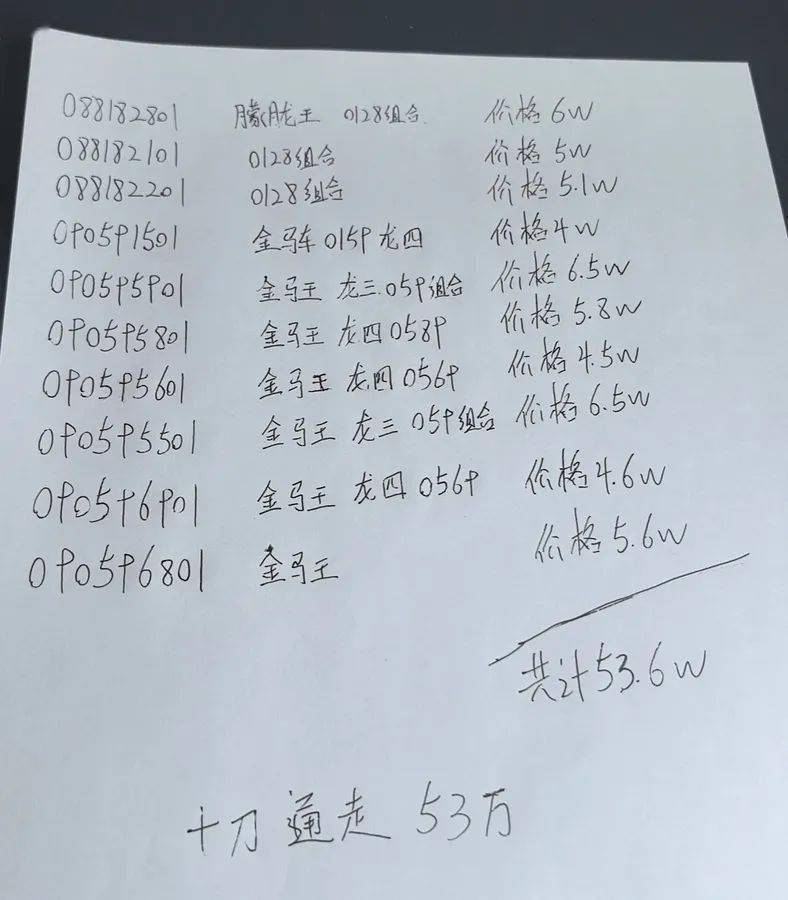 088182801 朦胧王 0128组合 价格6W
088182101 0128组合 价格5W
088182201 0128组合 价格5.1W
090591501 金马车 0159 龙四 价格4W
090595901 金马王 龙三 059组合 价格6.5W
090595801 金马王 龙四 0589 价格5.8W
090595601 金马王 龙四 0569 价格4.5W
090595501 金马王 龙三 059组合 价格6.5W
090596901 金马王 龙四 0569 价格4.6W
090596801 金马王 价格5.6W
共计53.6W
十刀 通走 53万